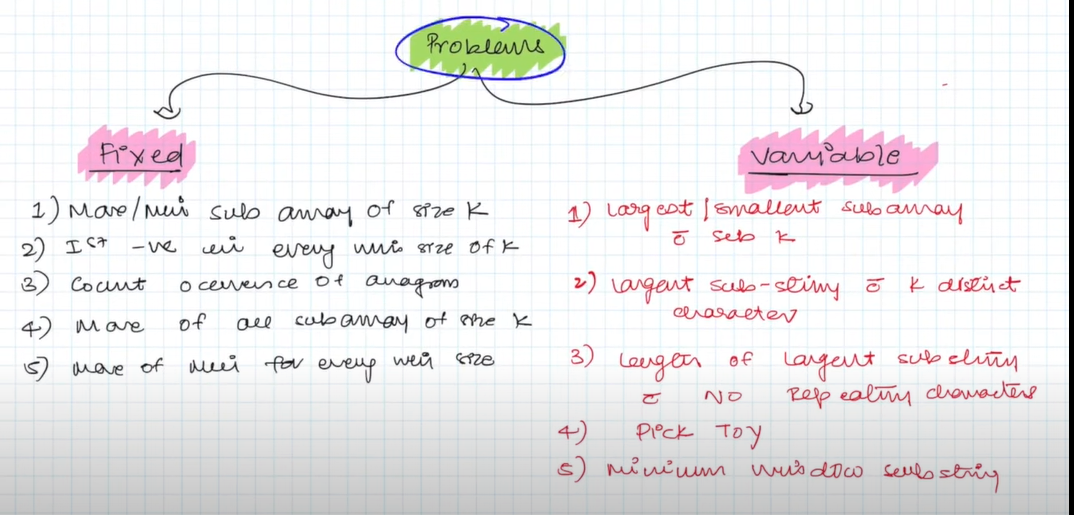 Problems
Fixed
1) Max/Min sub array of size K
2) Ist -ve in every win size of K
3) Count occurence of anagram
4) Max of all subarray of size K
5) Max of Min for every win size
Variable
1) Largest/smallest subarray
c̄ sum K
2) Largest sub-string c̄ K distinct
character
3) Length of largest substring
c̄ NO Repeating characters
4) Pick TOY
5) Minimum window substring